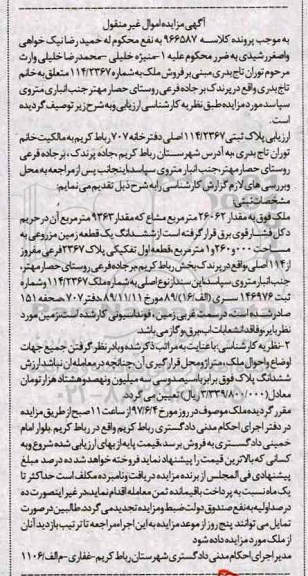 آگهی مزایده اموال غیر منقول
به موجب پرونده کلاسه ۹۶۶۵۸۷ به نفع محکوم له حمید رضا نیک خواهی
واصغر رشیدی به ضرر محکوم علیه ۱-منیژه خلیلی -محمدرضا خلیلی وارث
مرحوم توران تاج بدری مبنی بر فروش ملک به شماره ۱۱۴/۲۳۶۷ متعلق به خانم
تاج بدری واقع در پرندک بر جاده فرعی روستای حصار مهتر جنب انباری متروی
سپاسد مورد مزایده طبق نظریه کارشناسی ارزیابی وبه شرح زیر توصیف گردیده
است.
ارزیابی پلاک ثبتی ۱۱۴/۲۳۶۷ اصلی دفترخانه ۷۰۷ رباط کریم به مالکیت خانم
توران تاج بدری ،به آدرس شهرستان رباط کریم ،جاده پرندک ،بر جاده فرعی
روستای حصار مهتر،جنب انبار متروی سپاسد اینجانب پس از مراجعه به محل
وبررسی های لازم گزارش کارشناسی را به شرح ذیل تقدیم می نمایم:
مشخصات ثبتی
ملک فوق به مقدار ۲۶۰۶۲ متر مربع مشاع که مقدار ۹۳۶۳ متر مربع آن در حریم
دکل فشار قوی برق قرار گرفته است از ششدانگ یک قطعه زمین مزروعی به
مساحت ۰۰۰و۲۶۰و۱ متر مربع ،قطعه اول تفکیکی پلاک ۲۳۶۷ فرعی مفروز
از ۱۱۴ اصلی واقع در پرندک بخش رباط کریم،بر جاده فرعی روستای حصار مهتر،
جنب انبار متروی سپاسد این سند از نوع اصلی به شماره ملک ۱۱۴/۲۳۶۷ وشماره
ثبت ۱۴۶۹۷۶ سری (الف/۱۶)۸۹ مورخ ۸۹/۱۱/۱۱ دفتر ۷۰۷ صفحه ۱۵۱
صادر شده است، درسمت غربی زمین ، فونداسیونی کار شده است،زمین مورد
نظر بایر وفاقد انشعابات آب برق و گاز می باشد.
۲- نظریه کارشناسی:با عنایت به مراتب ذکر شده وبادر نظر گرفتن جمیع جهات
اوضاع واحوال ملک ،متراژ ومحل قرار گیری آن ،چنانچه در معامله ان نباشد ارزش
ششدانگ پلاک فوق برابر باسیصدوسی سه میلیون ونهصدوهشتاد هزار تومان
معادل(۳/۳۳۹/۸۰۰/۰۰۰ ریال) تعیین می گردد
مقرر گردیده ملک موصوف در روز مورخ ۹۷/۶/۴ از ساعت ۱۱ صبح از طریق مزایده
در دفتر اجرای احکام مدنی دادگستری رباط کریم واقع در رباط کریم بلوار امام
خمینی دادگستری به فروش برسد،قیمت پایه از بهای ارزیابی شده شروع وبه
کسانی که بالاترین قیمت را پیشنهاد نماید فروخته خواهد شد ده درصد مبلغ
پیشنهادی فی المجلس از برنده مزایده دریافت ونامبرده مکلف است حداکثر تا
یک ماه نسبت به پرداخت باقیمانده ثمن معامله اقدام نماید در غیر اینصورت ده
درصد اولیه به نفع صندوق دولت ضبط ومزایده تجدید می گردد.طالبین در صورت
تمایل می توانند پنج روز از موعد مزایده به این اجرا مراجعه تا ترتیب بازدید آنان
از ملک مورد مزایده داده شود
مدیر اجرای احکام مدنی دادگستری شهرستان رباط کریم -غفاری -م الف/۱۱۰۶